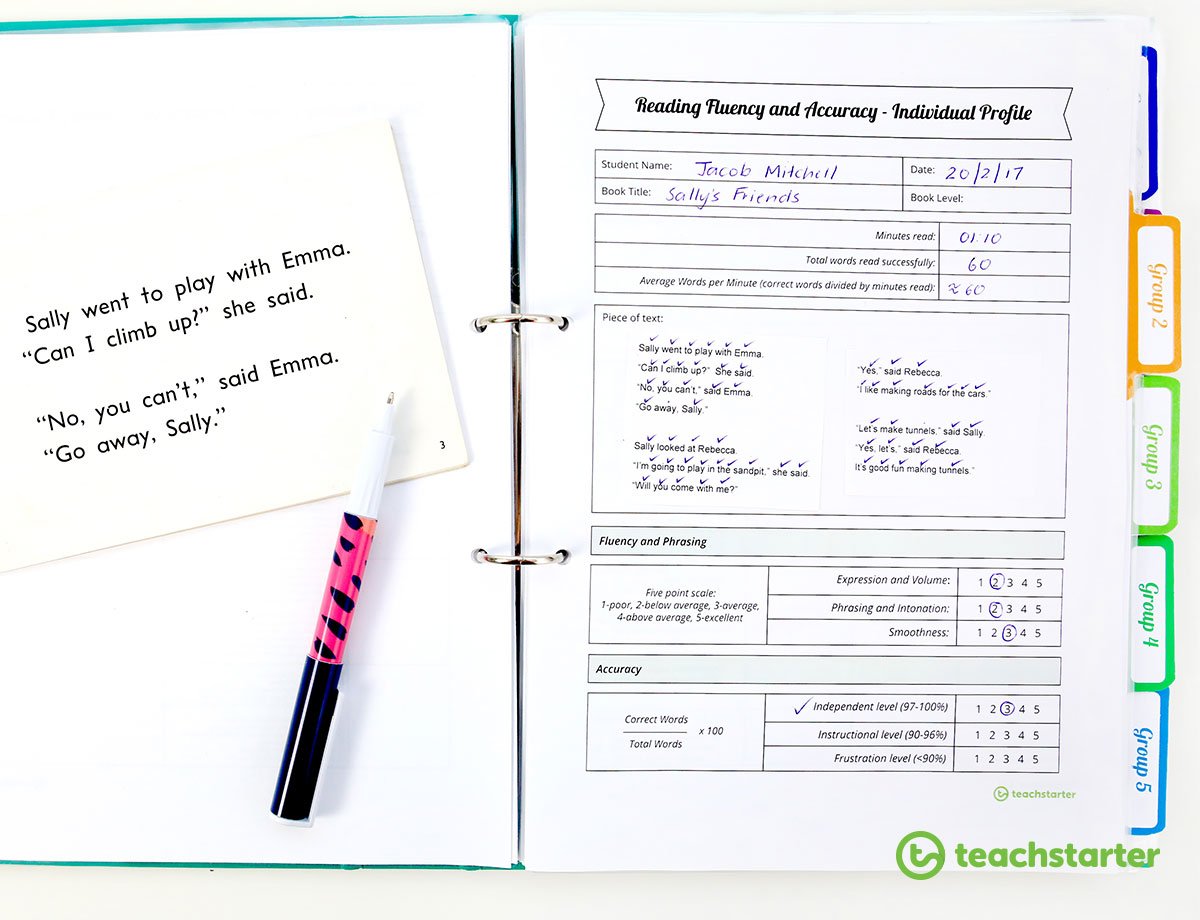 Sally went to play with Emma.
“Can I climb up?” she said.
“No, you can’t,” said Emma.
“Go away, Sally.”
3
Reading Fluency and Accuracy - Individual Profile
Student Name: Jacob Mitchell
Date: 20/2/17
Book Title: Sally's Friends
Book Level:
Minutes read: 01:10
Total words read successfully: 60
Average Words per Minute (correct words divided by minutes read): ≈ 60
Piece of text:
Sally went to play with Emma.
“Can I climb up?” She said.
“No, you can’t,” said Emma.
“Go away, Sally.”
Sally looked at Rebecca.
“I’m going to play in the sandpit,” she said.
“Will you come with me?”
“Yes,” said Rebecca.
“I like making roads for the cars.”
“Let’s make tunnels,” said Sally.
“Yes, let’s,” said Rebecca.
It’s good fun making tunnels.”
Fluency and Phrasing
Five point scale:
1-poor, 2-below average, 3-average,
4-above average, 5-excellent
Expression and Volume: 1 2 3 4 5
Phrasing and Intonation: 1 2 3 4 5
Smoothness: 1 2 3 4 5
Accuracy
Correct Words
Total Words
x 100
✓ Independent level (97-100%) 1 2 3 4 5
Instructional level (90-96%) 1 2 3 4 5
Frustration level (<90%) 1 2 3 4 5
teachstarter
Group 2
Group 3
Group 4
Group 5
teachstarter